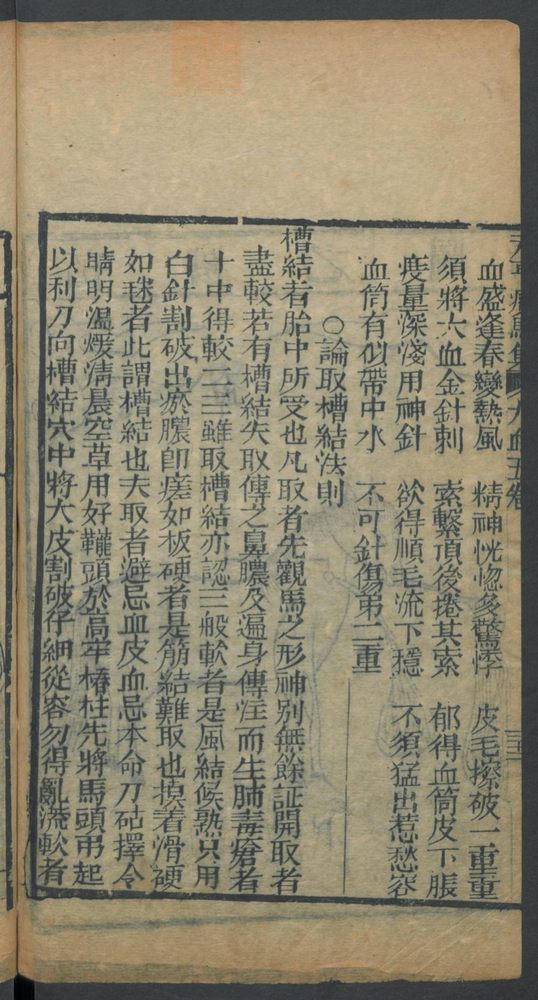 血盛逢春變熱風　精神恍惚多驚悸　皮毛擦破一重重
須將六血金針刺　索繫項後捲其索　郁得血筒皮下脹
度量深淺用神針　欲得順毛流下穩　不須猛出惹愁容
血筒有似帶中水　不可針傷苐二重
○論取槽結法則
槽結者胎中所受也凡取者先觀馬之形神別無餘証開取者
盡較若有槽結失取傳之鼻膿及遍身傳注而生肺毒瘡者
十中得較二三雖取槽結亦認三般軟者是風結候熟只用
白針割破出瘀膿卽瘥如板硬者是筋結難取也摸着滑硬
如毬者此謂槽結也夫取者避忌血皮血忌本命刀砧擇令
晴明溫煖淸晨空草用好韁頭於高牢樁柱先將馬頭弔起
以利刀向槽結穴中將大皮割破仔細從容勿得亂流軟者